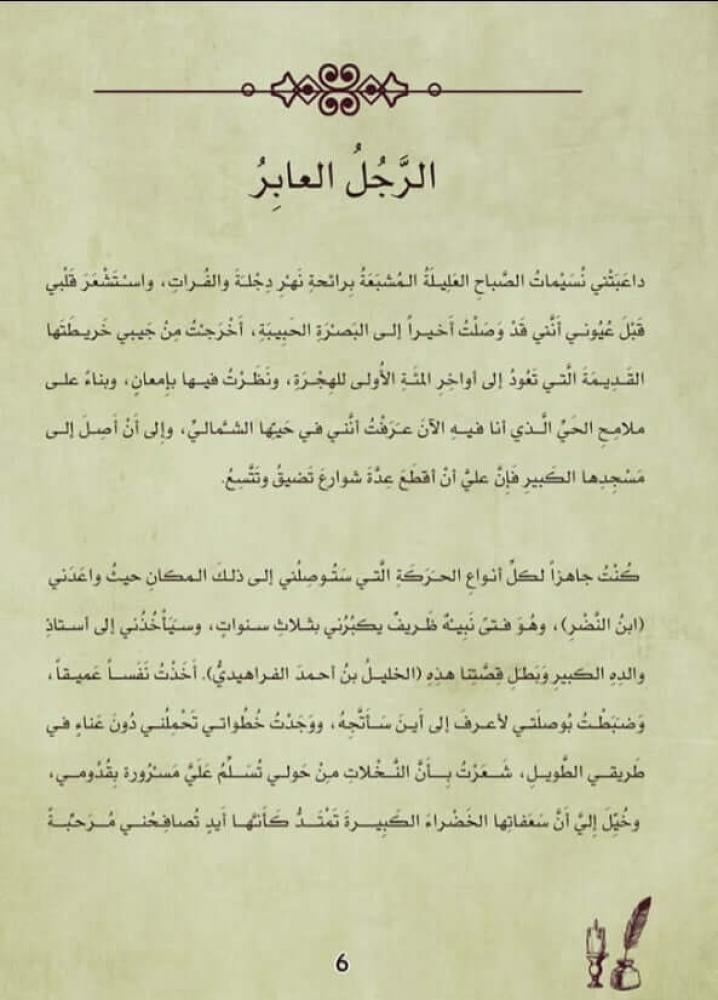 الرَّجُلُ العابِرُ
داعَبَتْني نُسَيْماتُ الصَّباحِ العَليلَةُ المُشبَعَةُ بِرائحةِ نَهْرِ دِجْلةَ والفُراتِ، واسْتَشْعَرَ قَلْبي
قَبْلَ عُيُوني أنَّني قَدْ وَصَلْتُ أخيراً إلى البَصْرَةِ الحَبيبَةِ، أخْرَجْتُ مِنْ جَيبي خَريطَتَها
القَديمَةَ الَّتي تَعُودُ إلى أواخِرِ المئَةِ الأُولى للهِجْرَةِ، ونَظَرْتُ فيها بإمعانٍ، وبناءً على
ملامِحِ الحَيِّ الَّذي أنا فيهِ الآنَ عرَفْتُ أنَّني في حَيِّها الشَّماليِّ، وإلى أنْ أصِلَ إلى
مَسْجِدِها الكَبيرِ فَإنَّ عليَّ أنْ أقطَعَ عِدَّةَ شوارعَ تَضيقُ وتَتَّسِعُ.
كُنْتُ جاهزاً لكلِّ أنواعِ الحرَكَةِ الَّتي سَتُوصِلُني إلى ذلكَ المكانِ حيثُ واعَدَني
(ابنُ النَّضْرِ)، وهُوَ فتىً نَبيهٌ ظَريفٌ يكبُرُني بثلاثِ سنواتٍ، وسيَأْخُذُني إلى أستاذِ
والدِهِ الكبيرِ وَبَطَلِ قِصَّتِنا هذِهِ (الخليلُ بنُ أحمدَ الفراهيديُّ). أخَذْتُ نَفَساً عَميقاً،
وَضبَطْتُ بُوصلَتي لأعرفَ إلى أينَ سَأتَّجِهُ، ووَجَدْتُ خُطُواتي تَحْمِلُني دُونَ عَناءٍ في
طَريقي الطَّويلِ، شَعَرْتُ بِأنَّ النَّخْلاتِ مِنْ حَولي تُسَلِّمُ عَلَيَّ مَسْرُورة بِقُدُومي،
وخُيِّلَ إليَّ أنَّ سَعَفاتِها الخَضْراءَ الكَبيرةَ تَمْتَدُّ كَأنَّها أيدٍ تُصافِحُني مُرَحِّبةً
6